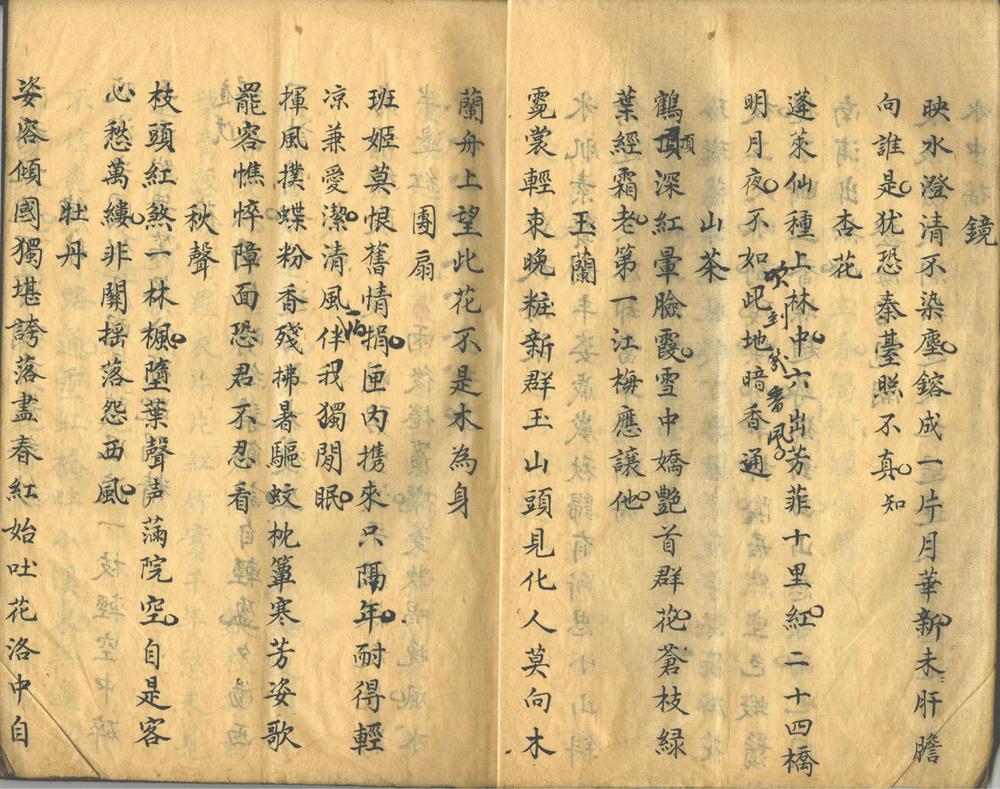 鏡
映水澄清不染塵鎔成一片月華新未肝膽
向誰是犹恐秦臺照不真知
杏花
蓬萊仙種上林中六出芳菲十里紅二十四橋
明月夜不如此地暗香通
吹到我香風
山茶
鶴頂深紅暈臉霞雪中嬌艷首群花蒼枝緑
頂
葉經霜老第一江梅應讓他
玉蘭
霓裳輕束晚粧新群玉山頭見化人莫向木
蘭舟上望此花不是木為身
團扇
班姬莫恨舊情捐匣內携來只隔年耐得輕
凉兼愛潔清風伴我獨閒眠
一酒
揮風撲蝶粉香殘拂暑驅蚊枕簟寒芳姿歌
罷容憔悴障面恐君不忍看
秋聲
枝頭紅煞一林楓墮葉聲声滿院空自是客
心愁萬縷非關揺落怨西風
牡丹
姿容傾國獨堪誇落盡春紅始吐花洛中自